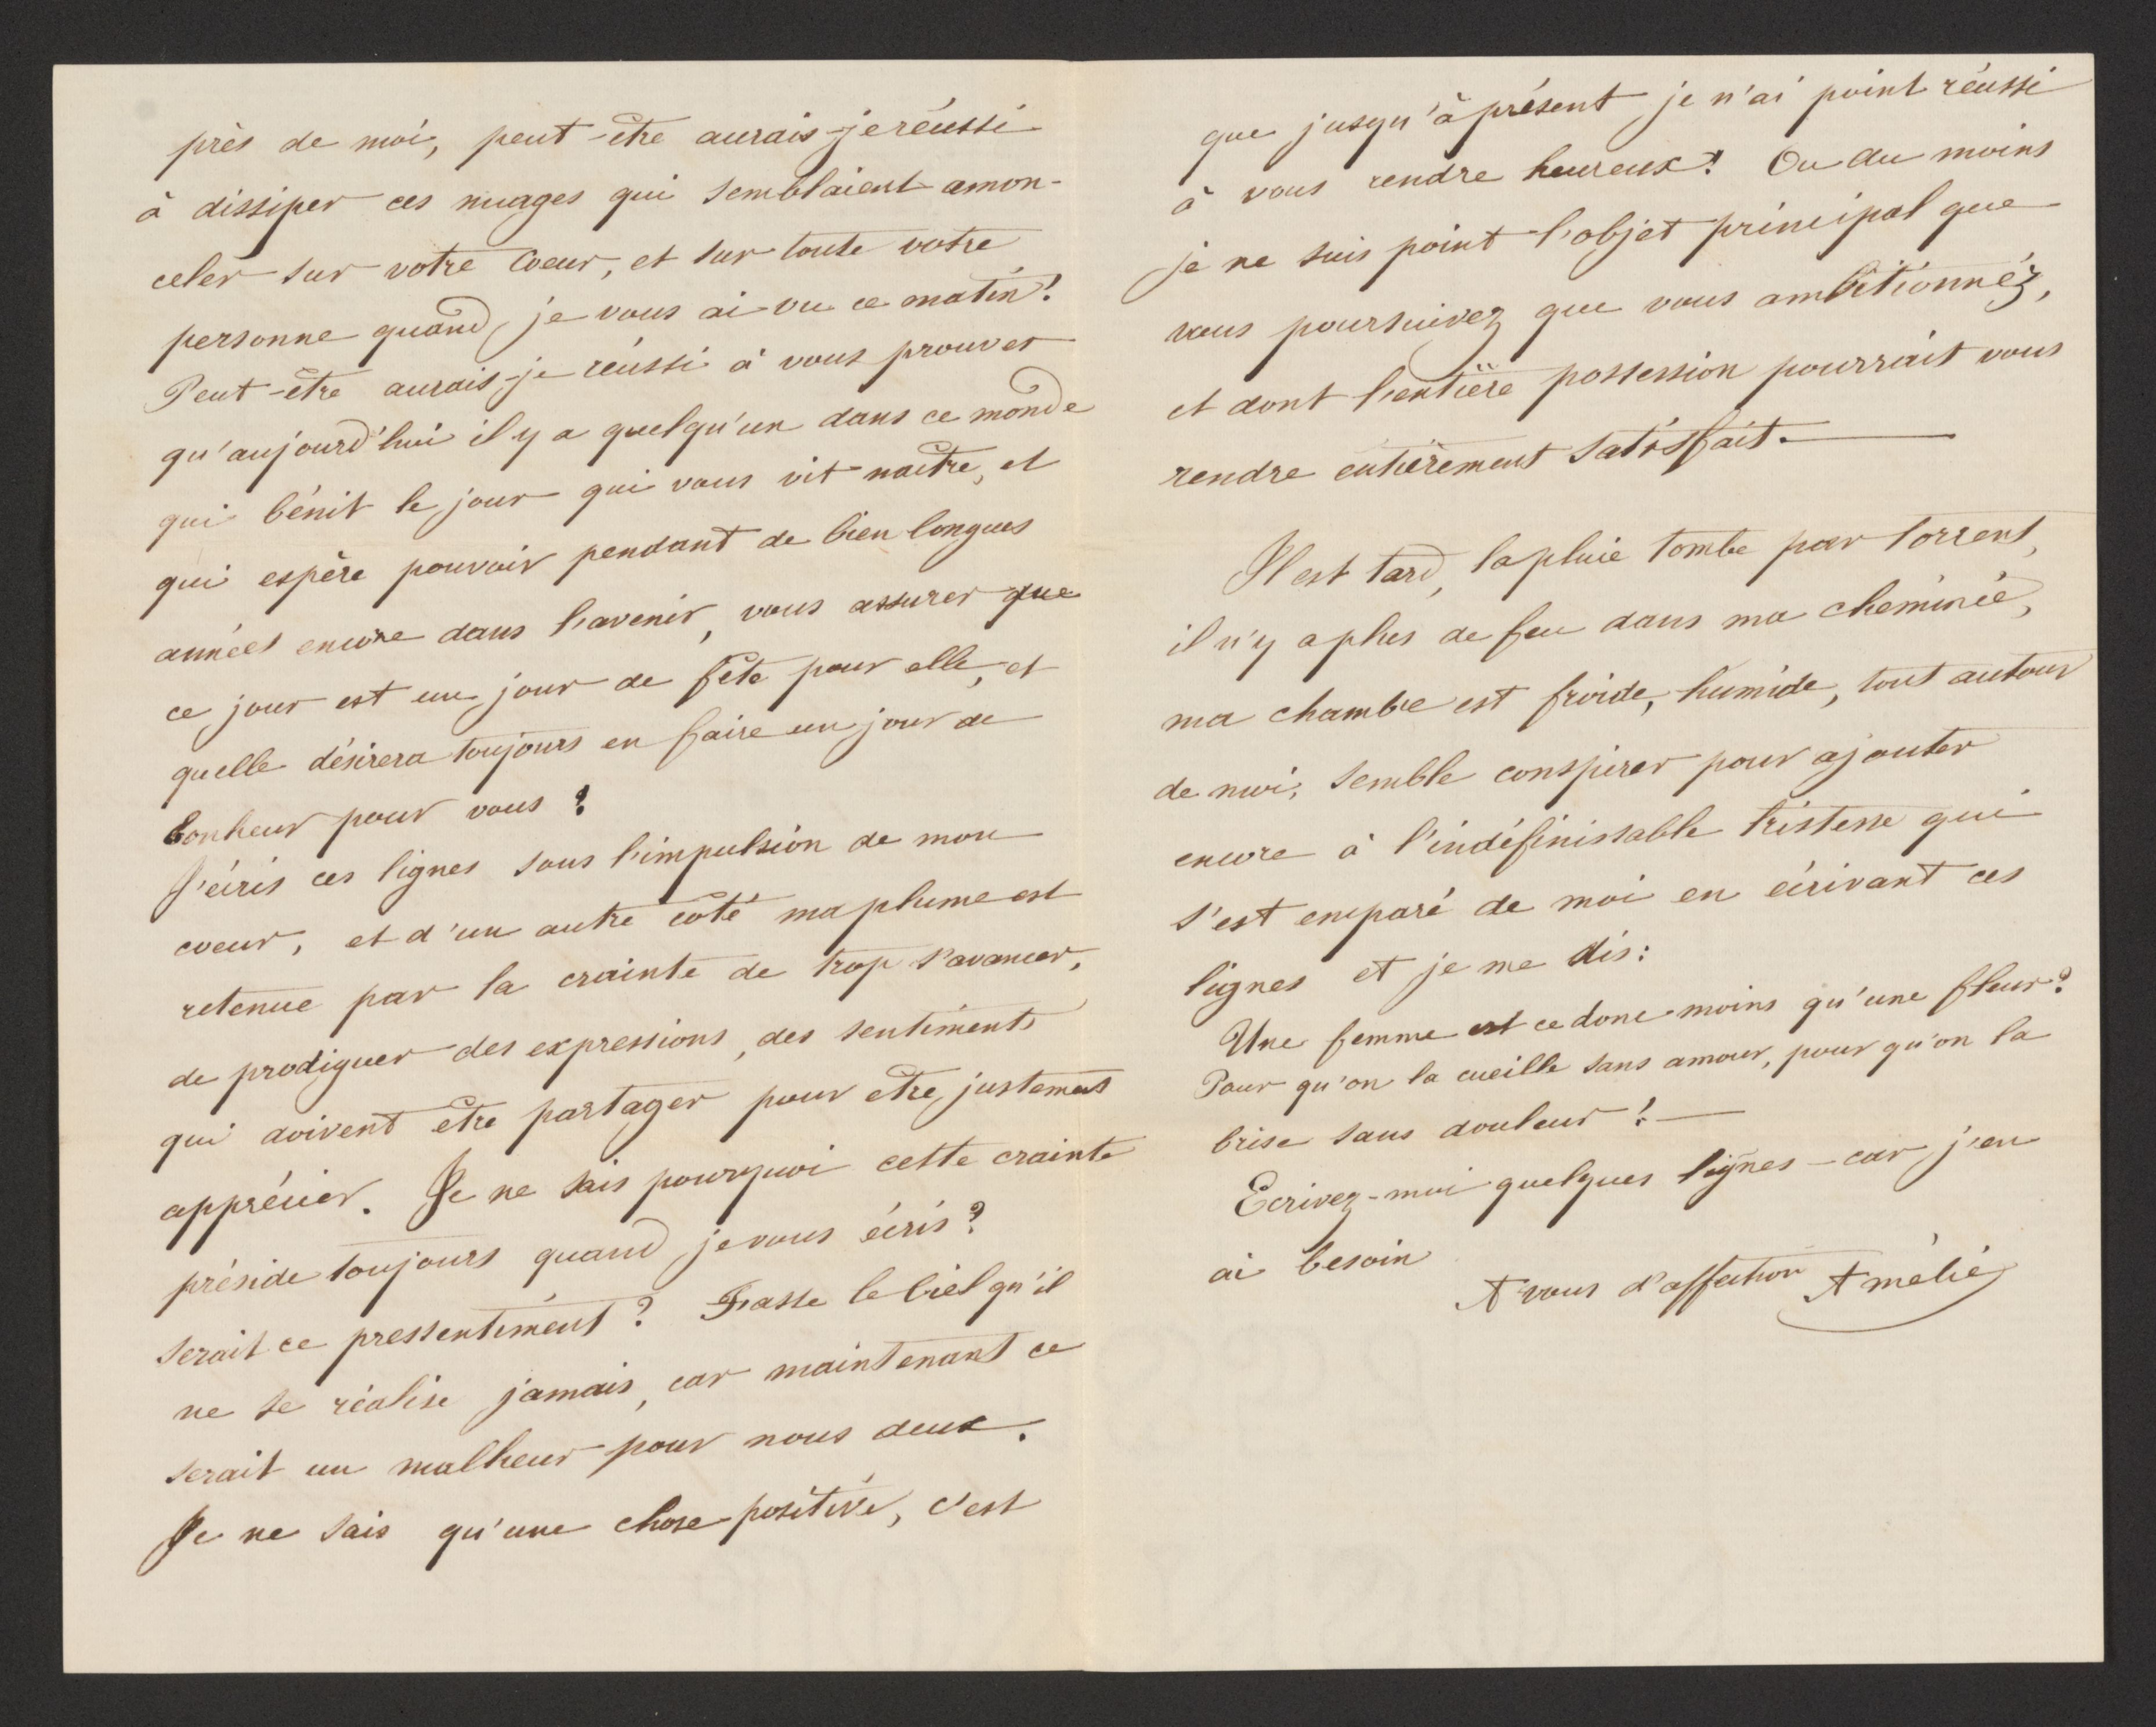 près de moi, peut-être aurais-je réussi
à dissiper ces nuages qui semblaient amon-
celer sur votre coeur, et sur toute votre
personne quand je vous ai vu ce matin!
Peut-être aurais-je réussi à vous prouver
qu'aujourd'hui il y a quelqu'un dans ce monde
qui bénit le jour qui vous vit naître, et
qui espère pouvoir pendant de bien longues
années encore dans l'avenir, vous assurer que
ce jour est un jour de fête pour elle, et
quelle désirera toujours en faire un jour de
bonheur pour vous!
J'écris ces lignes sous l'impulsion de mon
coeur, et d'un autre côté ma plume est
retenue par la crainte de trop s'avancer,
de prodiguer des expressions, des sentiments
qui doivent être partager pour etre justement
apprécier. Je ne sais pourquoi cette crainte
préside toujours quand je vous écris?
serait ce pressentiment? Fasse le Ciel qu'il
ne se réalise jamais, car maintenant ce
serait un malheur pour nous deux.
Je ne sais qu'une chose positive, c'est
que jusqu'à présent je n'ai point réussi
à vous rendre heureux! Ou du moins
je ne suis point l'objet principal que
vous poursuivez que vous ambitionnéz,
et dont l'entière possession pourrait vous
rendre entièrement satisfait.—
Il est tard, la pluie tombe par torrent,
il n'y a plus de feu dans ma cheminée,
ma chambre est froide, humide, tout autour
de moi, semble conspirer pour ajouter
encore à l'indéfinissable tristesse qui
s'est emparé de moi en écrivant ces
lignes et je me dis:
Une femme est ce donc moins qu'une fleur?
Pour qu'on la cueille sans amour, pour qu'on la
brise sans douleur!—
Ecrivez-moi quelques lignes – car j'en
ai besoin
A vous d'affection Amélie